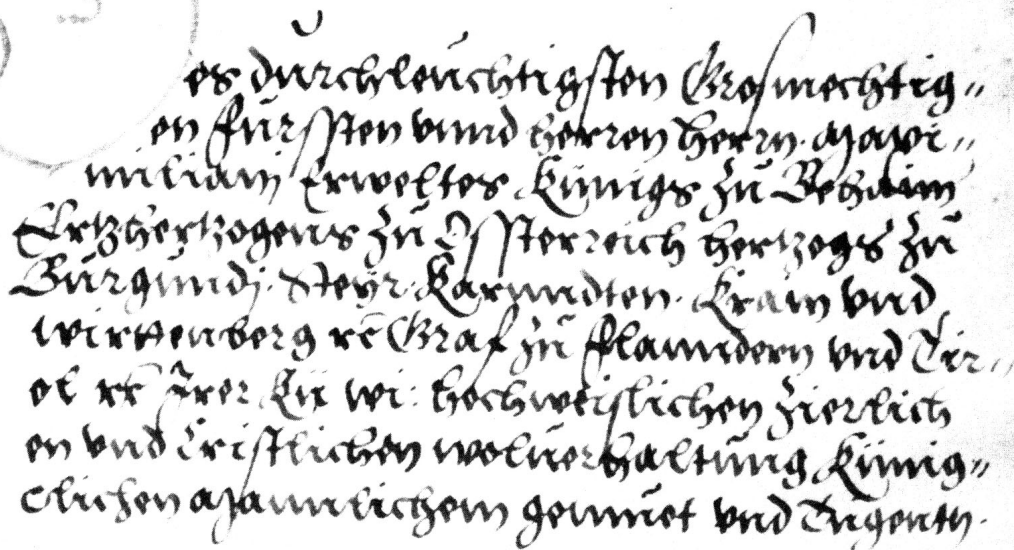 es durchleuchtigsten Grosmechtig„
en fürssten vnnd herren herrn. Maxi„
miliani Erweltes Künigs zu Behaim
Ertzhertzogens zu Össterreich hertzogs zu
Burgundj. Steyr. Kärnndten. Krain vnd
Wirttenberg rc̃ Graf zu Flanndern vnd Tir„
ol rc̃ Irer Kü wi: hochweislichen zierlich
en vnd Cristlichen woluerhaltung Künig„
clichen Mannlichem gemuet vnd Tugenth.